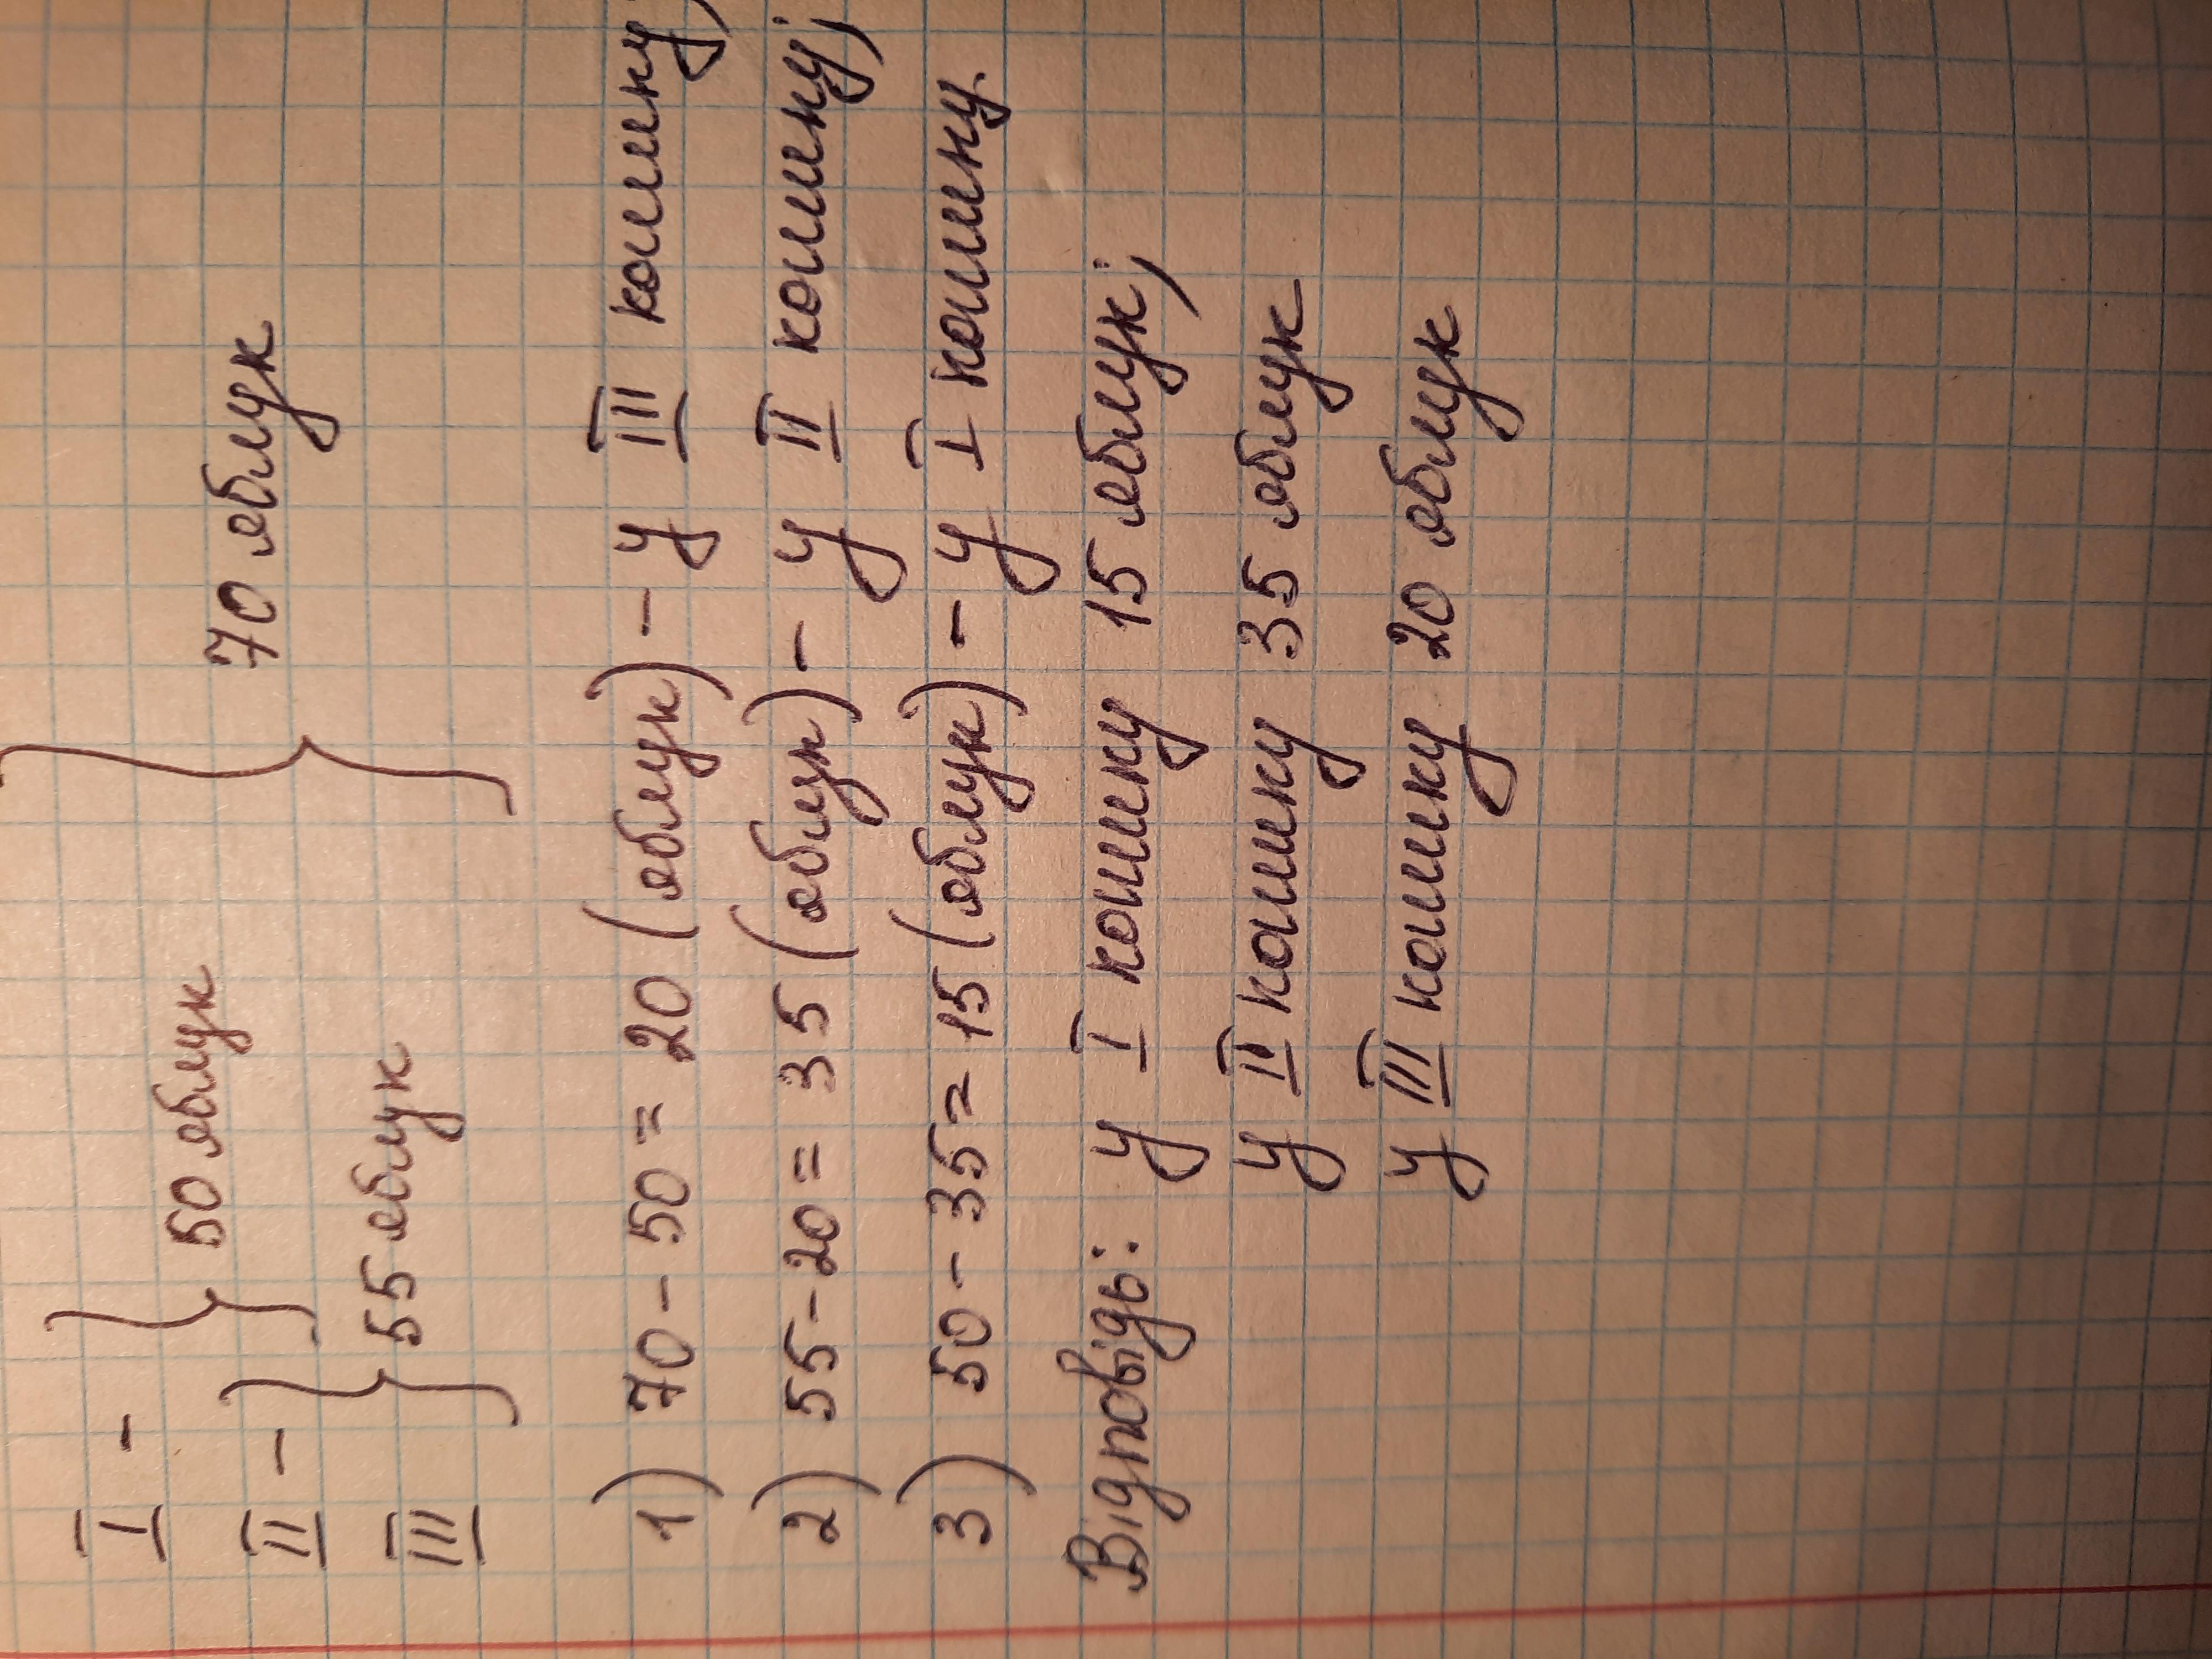 I -
50 яблук
II -
70 яблук
55 яблук
III
1) 70 - 50 = 20 (яблук) - у III кошику;
2) 55 - 20 = 35 (яблук) - у II кошику;
3) 50 - 35 = 15 (яблук) - у I кошику.
Відповідь: у I кошику 15 яблук;
у II кошику 35 яблук
у III кошику 20 яблук